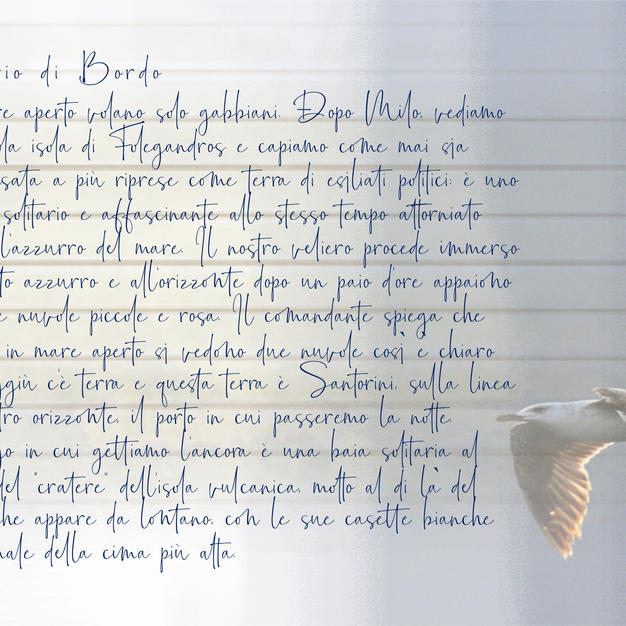 rio di Bordo
re aperto volano solo gabbiani. Dopo Milo, vediamo
la isola di Folegandros e capiamo come mai sia
sata a più riprese come terra di esiliati politici: è uno
solitario e affascinante allo stesso tempo attorniato
l'azzurro del mare. Il nostro veliero procede immerso
to azzurro e all'orizzonte dopo un paio d'ore appaiono
e nuvole piccole e rosa. Il comandante spiega che
in mare aperto si vedono due nuvole così è chiaro
ggiù c'è terra e questa terra è Santorini, sulla linea
tro orizzonte, il porto in cui passeremo la notte.
go in cui gettiamo l'ancora è una baia solitaria al
del "cratere" dell'isola vulcanica, molto al di là del
he appare da lontano, con le sue casette bianche
nale della cima più alta.